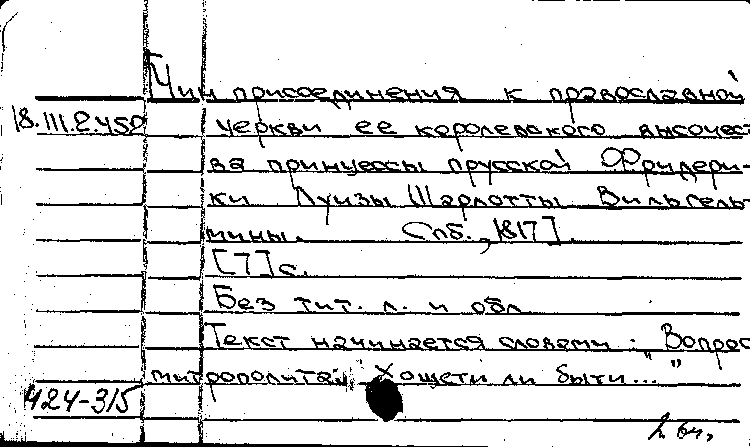 [Чин присоединения к православной
18.III.2.450 церкви ее королевского высочест
ва принцессы прусской Фридери-
ки Луизы Шарлотты Вильгель-
мины. Спб., 1817].
[7] с.
Без тит. л. и обл.
Текст начинается словами: "Вопрос
митрополитам Хощети ли быти..."
424-315